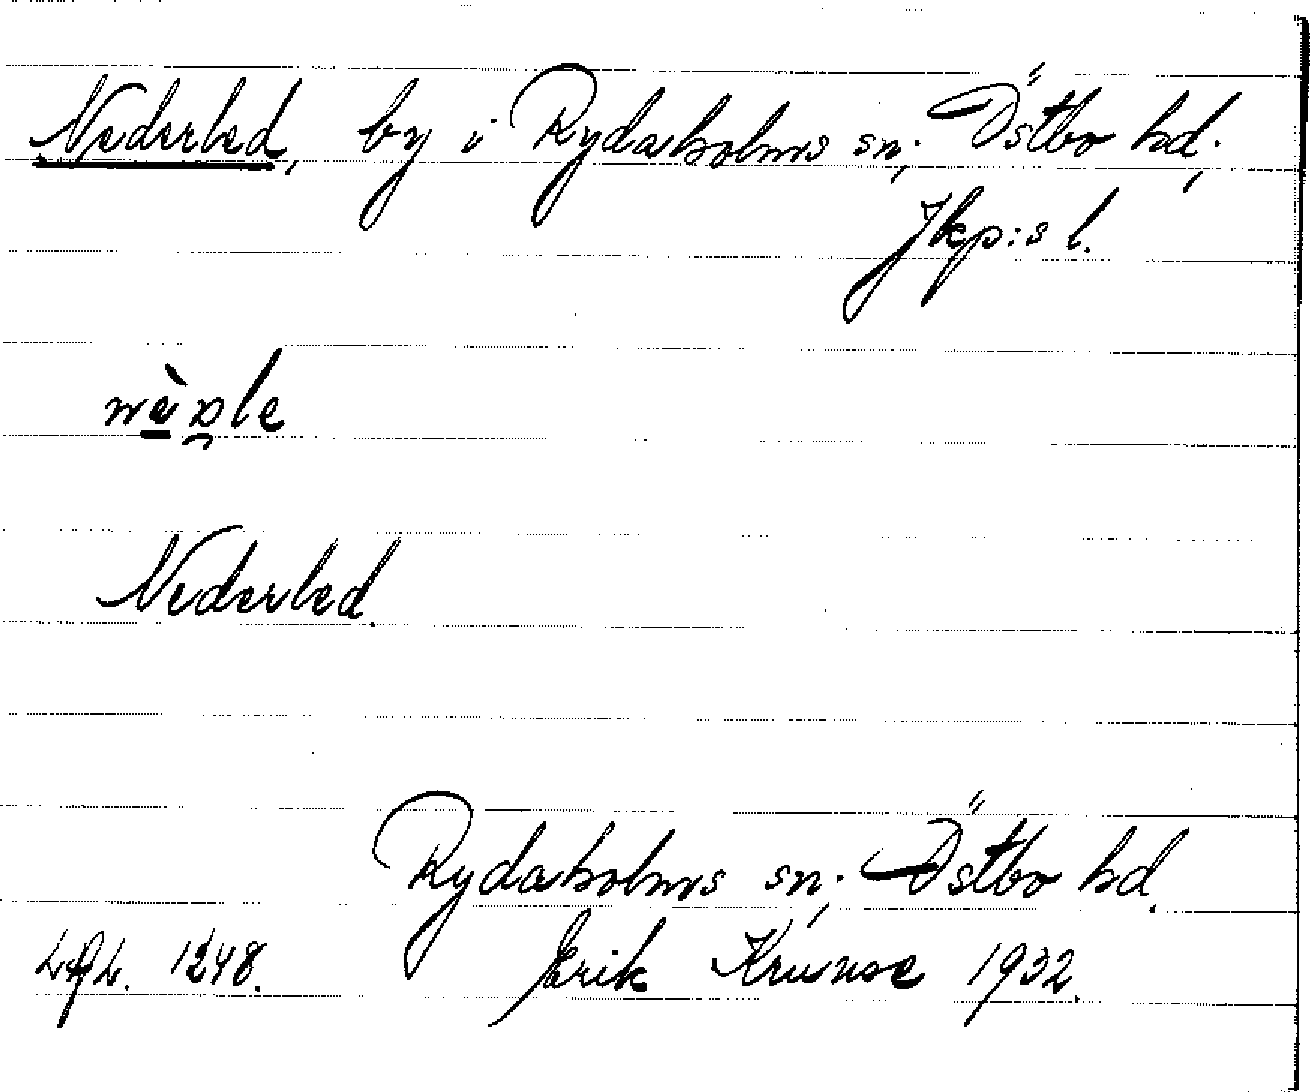 Nederled, by i Rydaholms sn; Östbo hd;
Jkp:s l.
Nederled.
Rydaholms sn; Östbo hd.
1248. Erik Krusnose 1932.